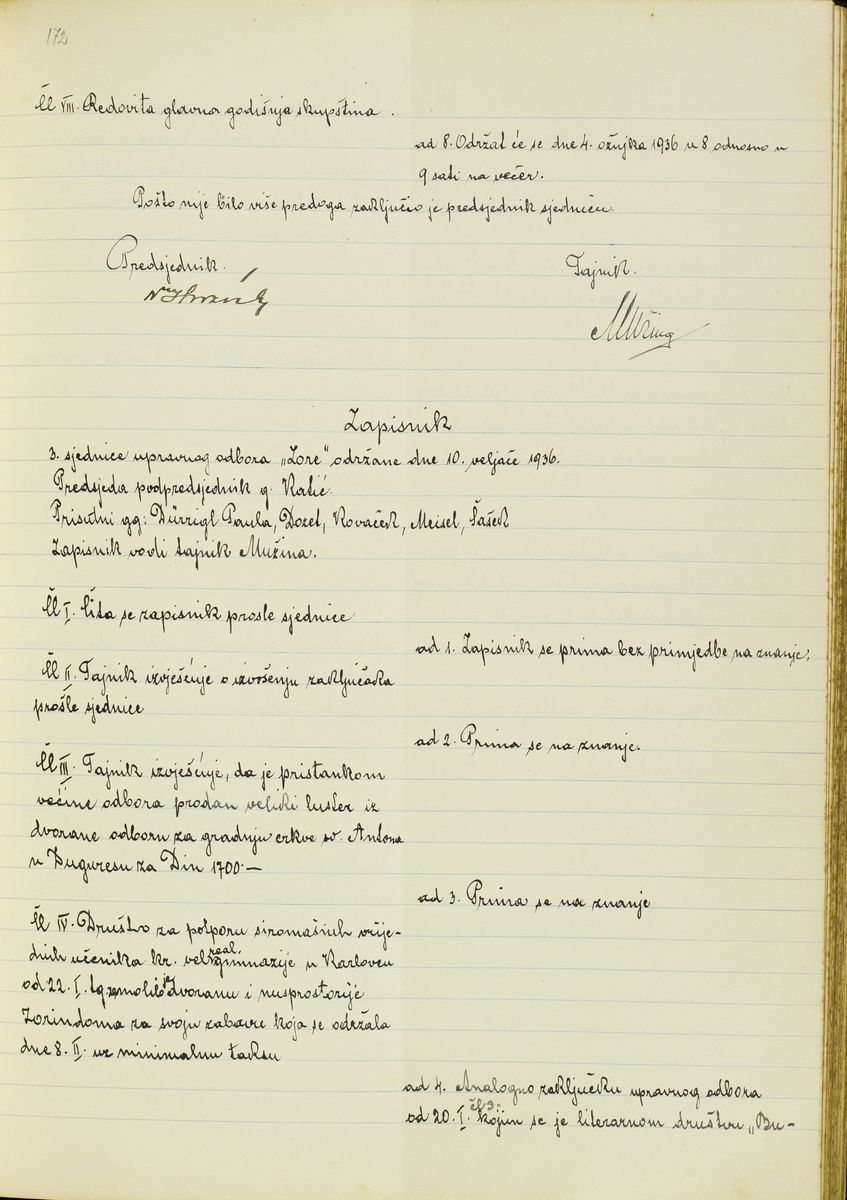 172
Čl VIII. Redovita glavna godišnja skupština.
ad 8. Održat će se dne 4. ožujka 1936 u 8 odnosno u
9 sati na večer.
Pošto nije bilo više predloga zaključio je predsjednik sjednicu.
Predsjednik.
Tajnik.
Zapisnik
3. sjednice upravnog odbora „Zore" održane dne 10. veljače 1936.
Predsjeda podpredsjednik g. Katić.
Prisutni gg: Dürrigl Paula, Dozet, Kovaček, Meisel, Šašek
Zapisnik vodi tajnik Mužina.
Čl I. Čita se zapisnik prosle sjednice
ad 1. Zapisnik se prima bez primjedbe na znanje.
Čl II. Tajnik izvješćuje o izvršenju zaključaka
prošle sjednice
ad 2. Prima se na znanje.
Čl III. Tajnik izvješćuje, da je pristankom
većine odbora prodan veliki luster iz
dvorane odboru za gradnju crkve sv. Antona
u Dugaresu za Din 1700.—
ad 3. Prima se na znanje
Čl IV. Društvo za potporu siromašnih vrije-
dnih učenika kr. vel. real. gimnazije u Karlovcu
od 22. I. tg. zamolilo je dvoranu i nusprostorije
Zorindoma za svoju zabavu koja se održala
dne 8. II. uz minimalnu taksu
ad 4. Analogno zaključku upravnog odbora
od 20. I. čl 3. kojim se je literarnom društvu „Bu-